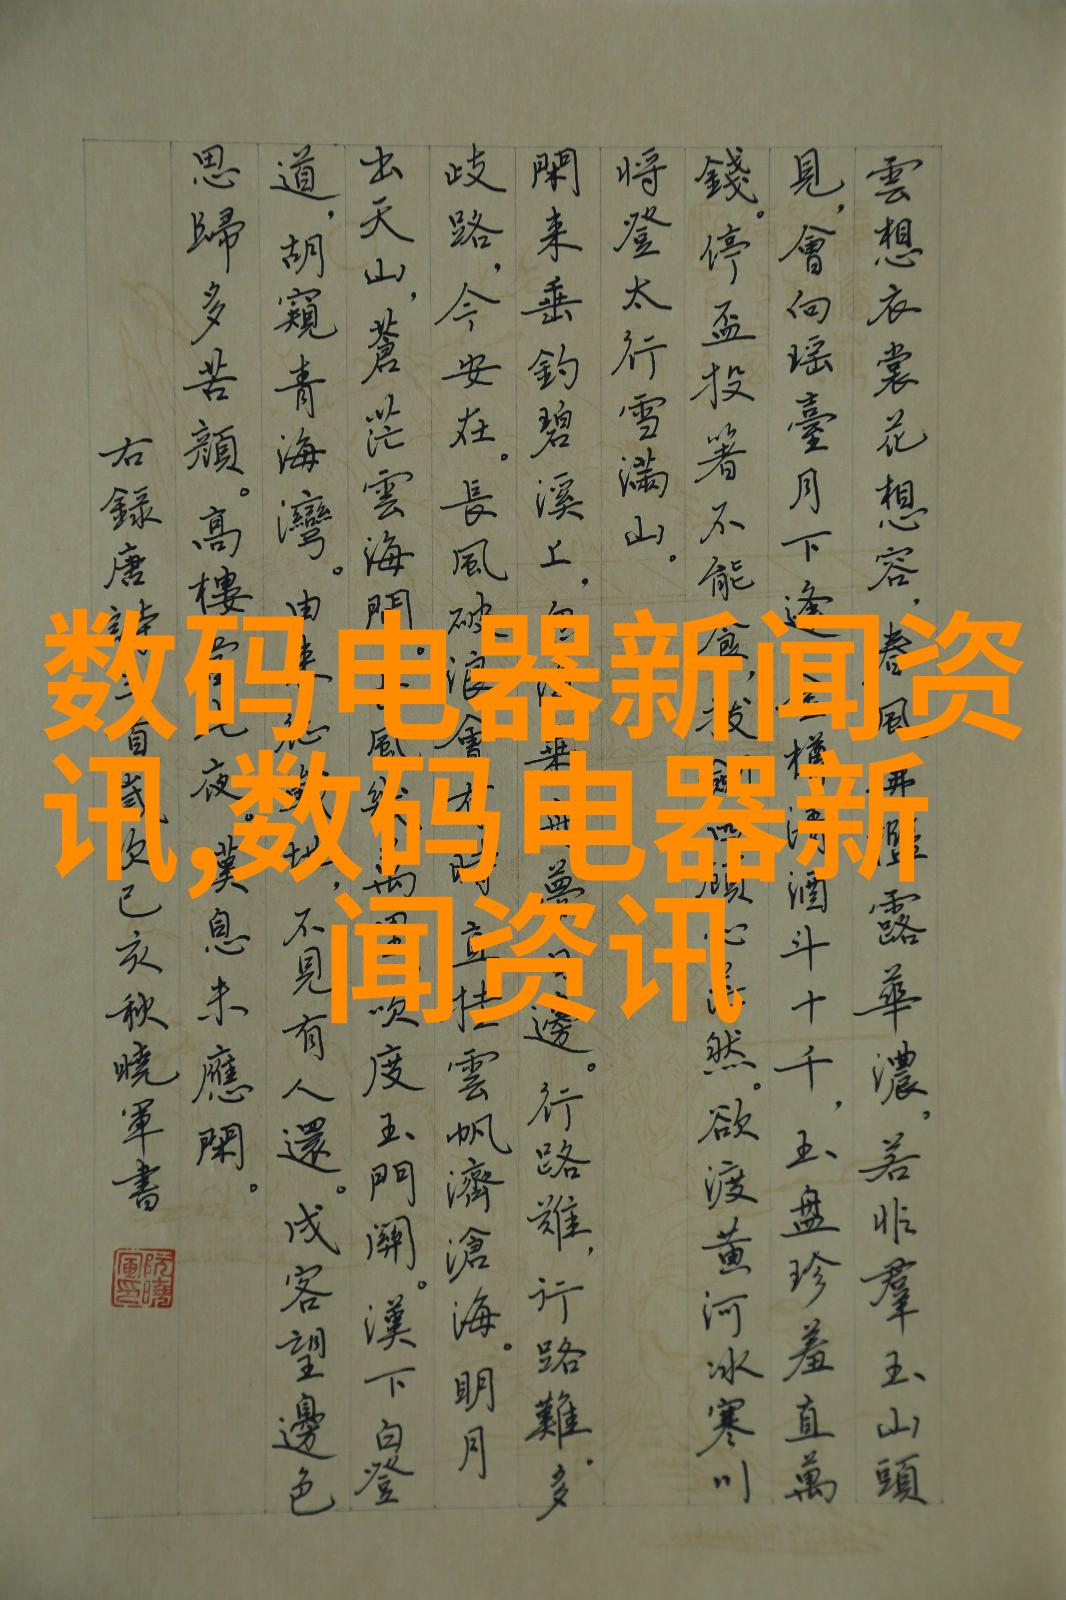 数码电器新闻资
讯,数码电器新
闻资讯
雲想衣裳花想容，春風拂檻露華濃，若非羣玉山頭
見，會向瑶臺月下逢樽清酒斗十千，玉盤珍羞直萬
錢。停盃投箸不能食，拔劍顧心茫然。欲渡黄河冰寒川
将登太行雪滿山。
閑来垂釣碧溪上，乘夢邊。行路難，行路難。多
歧路，今安在。長風破浪會有時直挂雲帆濟滄海。明月
出天山，蒼茫雲海間風萬吹度玉門關。漢下白登
道，胡窺青海灣。由来地，不見有人還。戍客望邊色
思歸多苦顔。高樓當此夜。嘆息未應閑。
右録唐詩首歲次己亥秋曉軍書
阮曉軍印